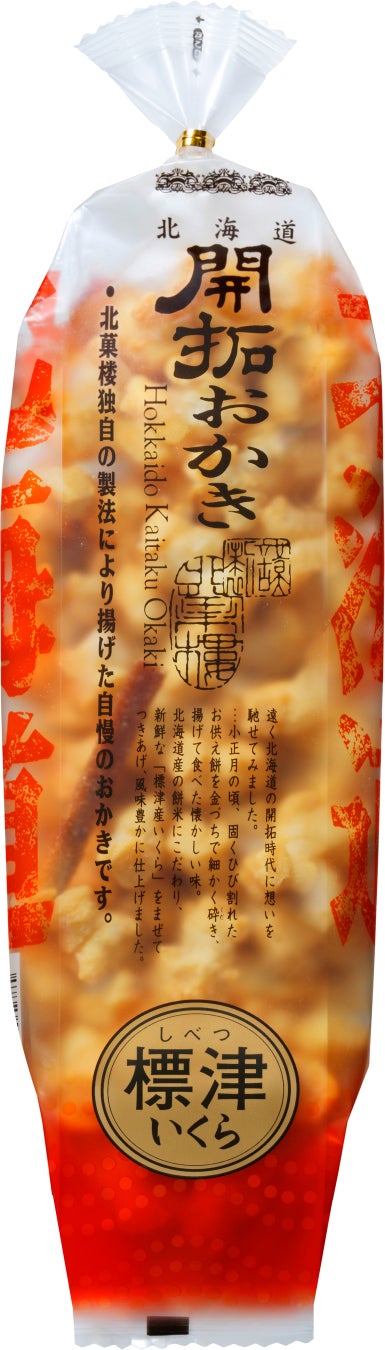 北海道
開拓おかき
Hokkaido Kaitaku Okaki
北菓楼
・北菓楼独自の製法により揚げた自慢のおかきです。
遠く北海道の開拓時代に想いを
馳せてみました。
…小正月の頃、固くひび割れた
お供え餅を金づちで細かく砕き、
揚げて食べた懐かしい味。
北海道産の餅米にこだわり、
新鮮な「標津産いくら」をまぜて
つきあげ、風味豊かに仕上げました。
しべつ
標津
いくら
北海道